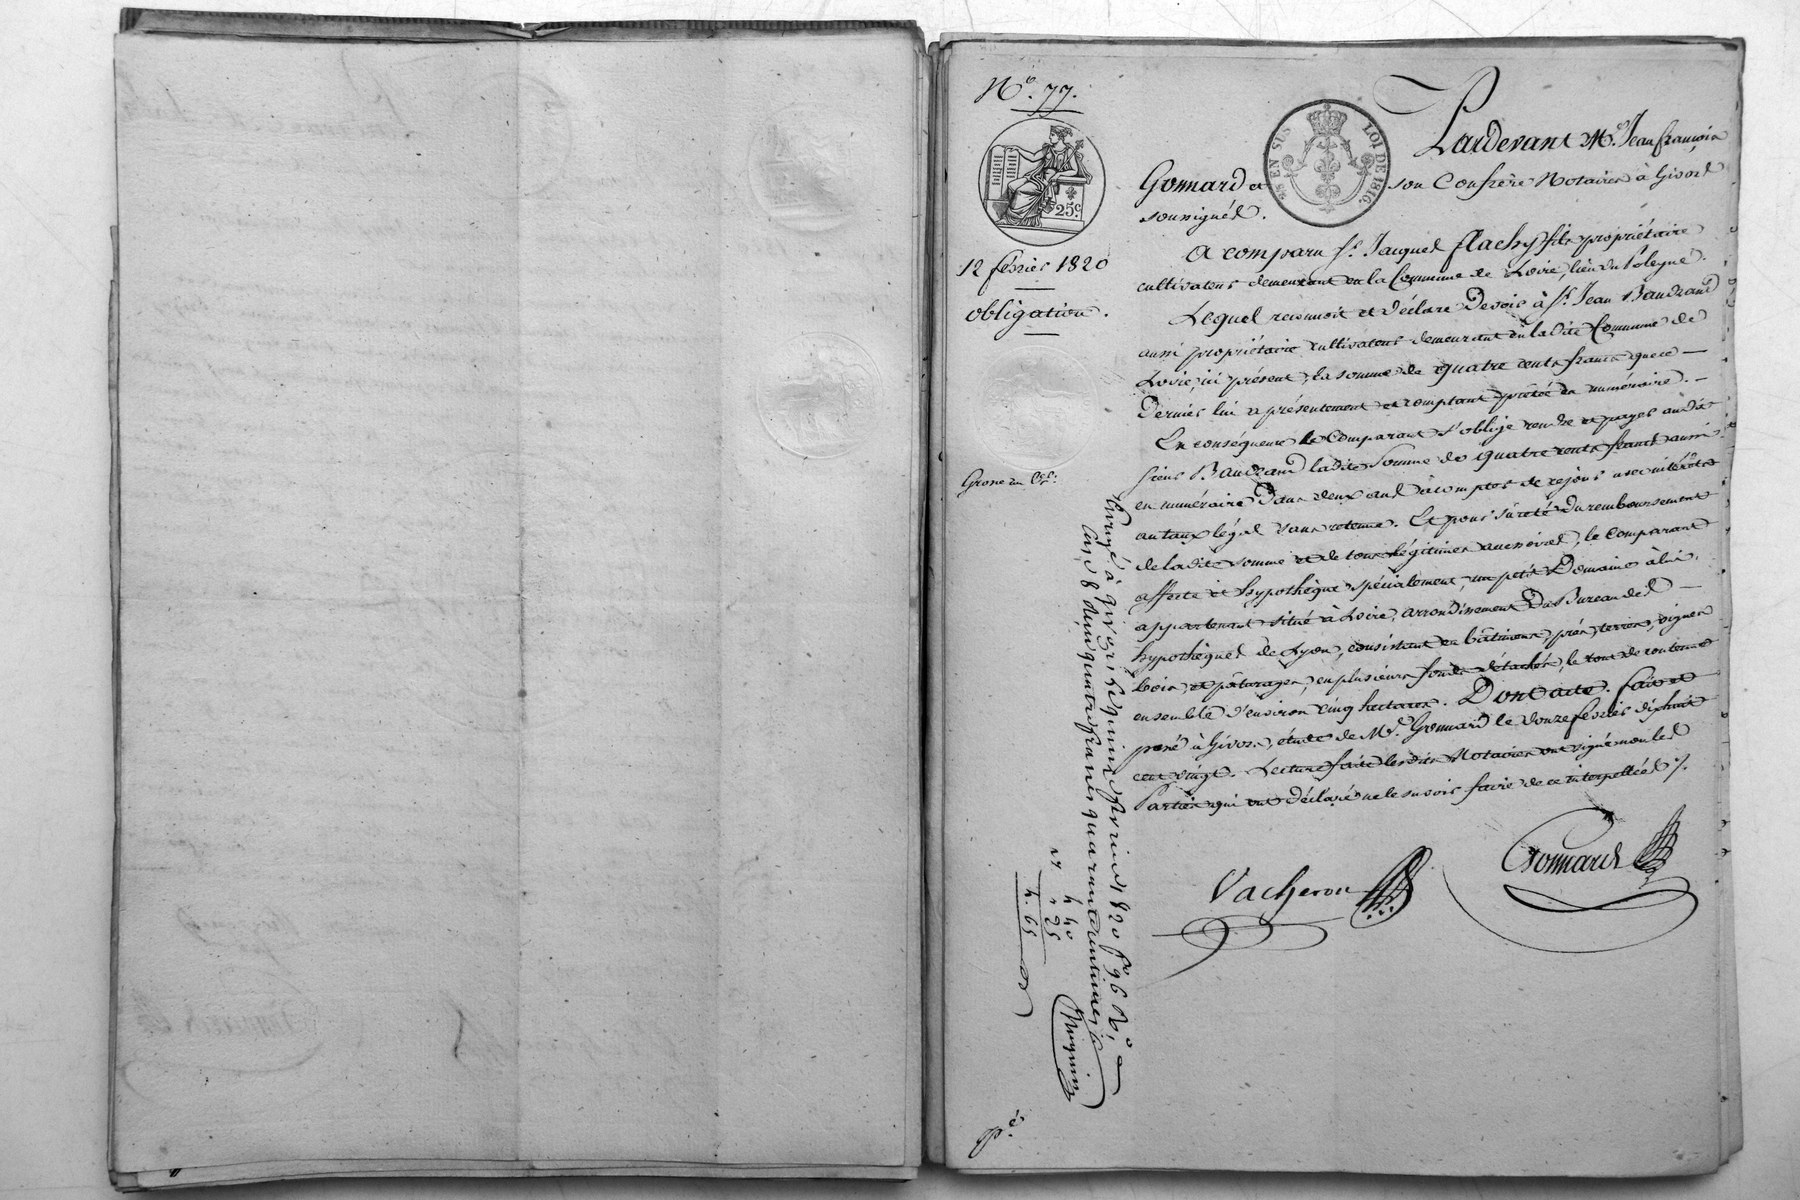 N.º 77.
25.ᶜ
12 février 1820
obligation.
25 EN SUS LOI DE 1816.
Pardevant M.ᵉ Jean françois
Gonnard et son Confrère Notaires à Givors
soussignés.
A comparu S.ʳ Jacques flachy fils propriétaire
cultivateur demeurant en la Commune de Loire, lieu du
Lequel reconnoit et déclare devoir à S.ʳ Jean Baudrand
aussi propriétaire cultivateur demeurant en la dite Commune de
Loire, ici présent, la somme de quatre cents francs que ce
dernier lui a présentement et comptant prêtée en numéraire.
En conséquence le Comparant s'oblige rendre et payer au dit
sieur Baudrand la dite Somme de quatre cents francs aussi
en numéraire dans deux ans à compter de ce jour avec intérêts
au taux légal sans retenue. Et pour sûreté du remboursement
de la dite somme et de tous légitimes accessoires, le comparant
affecte et hypothèque spécialement, un petit Domaine à lui
appartenant situé à Loire, arrondissement du Bureau des
hypothèques de Lyon, consistant en bâtiments, prés, terres, vignes
bois, et pâturages, en plusieurs fonds détachés, le tout de contenue
ensemble d'environ cinq hectares. Dont acte. fait et
passé à Givors, étude de M.ᵉ Gonnard le douze février dix huit
cent vingt. Lecture faite les dits Notaires ont signé non les
Parties qui ont déclaré ne le savoir faire de ce interpellées ./.
Vacheron
Gonnard
Grosse au
Enregé à givors le quinze fevrier 1820 f.º 96 R.º
Case 8 reçu quatre francs quarante centimes
4 40
" 25
4. 65